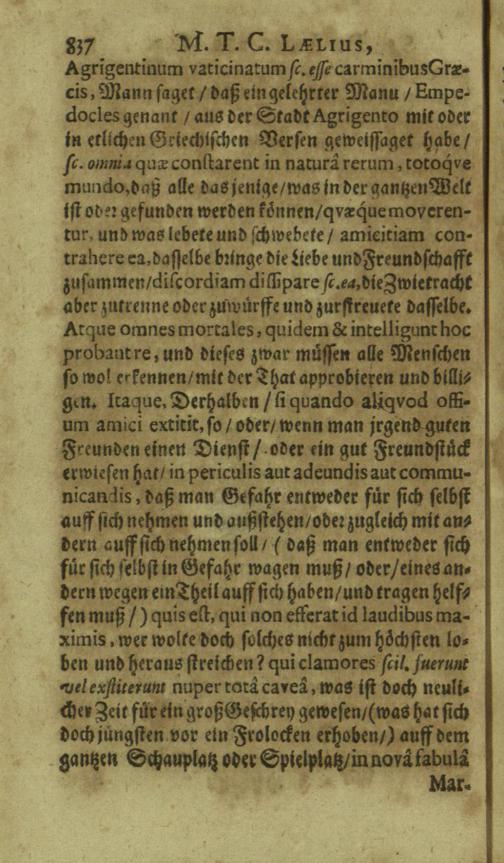 837 M. T. C. LÆLIUS,
Agrigentinum vaticinatum sc. esse carminibus Græ-
cis, Mann saget / daß ein gelehrter Mann / Empe-
docles genant / aus der Stadt Agrigento mit oder
in etlichen Griechischen Versen geweissaget habe /
sc. omnia quæ constarent in naturâ rerum, totoqve
mundo, daß alle das jenige / was in der gantzen Welt
ist oder gefunden werden können / qvæque moveren-
tur, und was lebete und schwebete / amicitiam con-
trahere ea, dasselbe bringe die Liebe und Freundschafft
zusammen / discordiam dissipare sc. ea, die Zwietracht
aber zutrenne oder zuwürffe und zurstreuete dasselbe.
Atque omnes mortales, quidem & intelligunt hoc
probant re, und dieses zwar müssen alle Menschen
so wol erkennen / mit der That approbieren und billi-
gen. Itaque, Derhalben / si quando aliqvod offi-
um amici extitit, so / oder / wenn man jrgend guten
Freunden einen Dienst / oder ein gut Freundstück
erwiesen hat / in periculis aut adeundis aut commu-
nicandis, daß man Gefahr entweder für sich selbst
auff sich nehmen und außstehen / oder zugleich mit an-
dern auff sich nehmen soll / ( daß man entweder sich
für sich selbst in Gefahr wagen muß / oder / eines an-
dern wegen ein Theil auff sich haben / und tragen helf-
fen muß / ) quis est, qui non efferat id laudibus ma-
ximis, wer wolte doch solches nicht zum höchsten lo-
ben und heraus streichen? qui clamores scil. fuerunt
vel exstiterunt nuper totâ caveâ, was ist doch neuli-
cher Zeit für ein groß Geschrey gewesen / (was hat sich
doch jüngsten vor ein Frolocken erhoben / ) auff dem
gantzen Schauplatz oder Spielplatz / in novâ fabulâ
Mar-